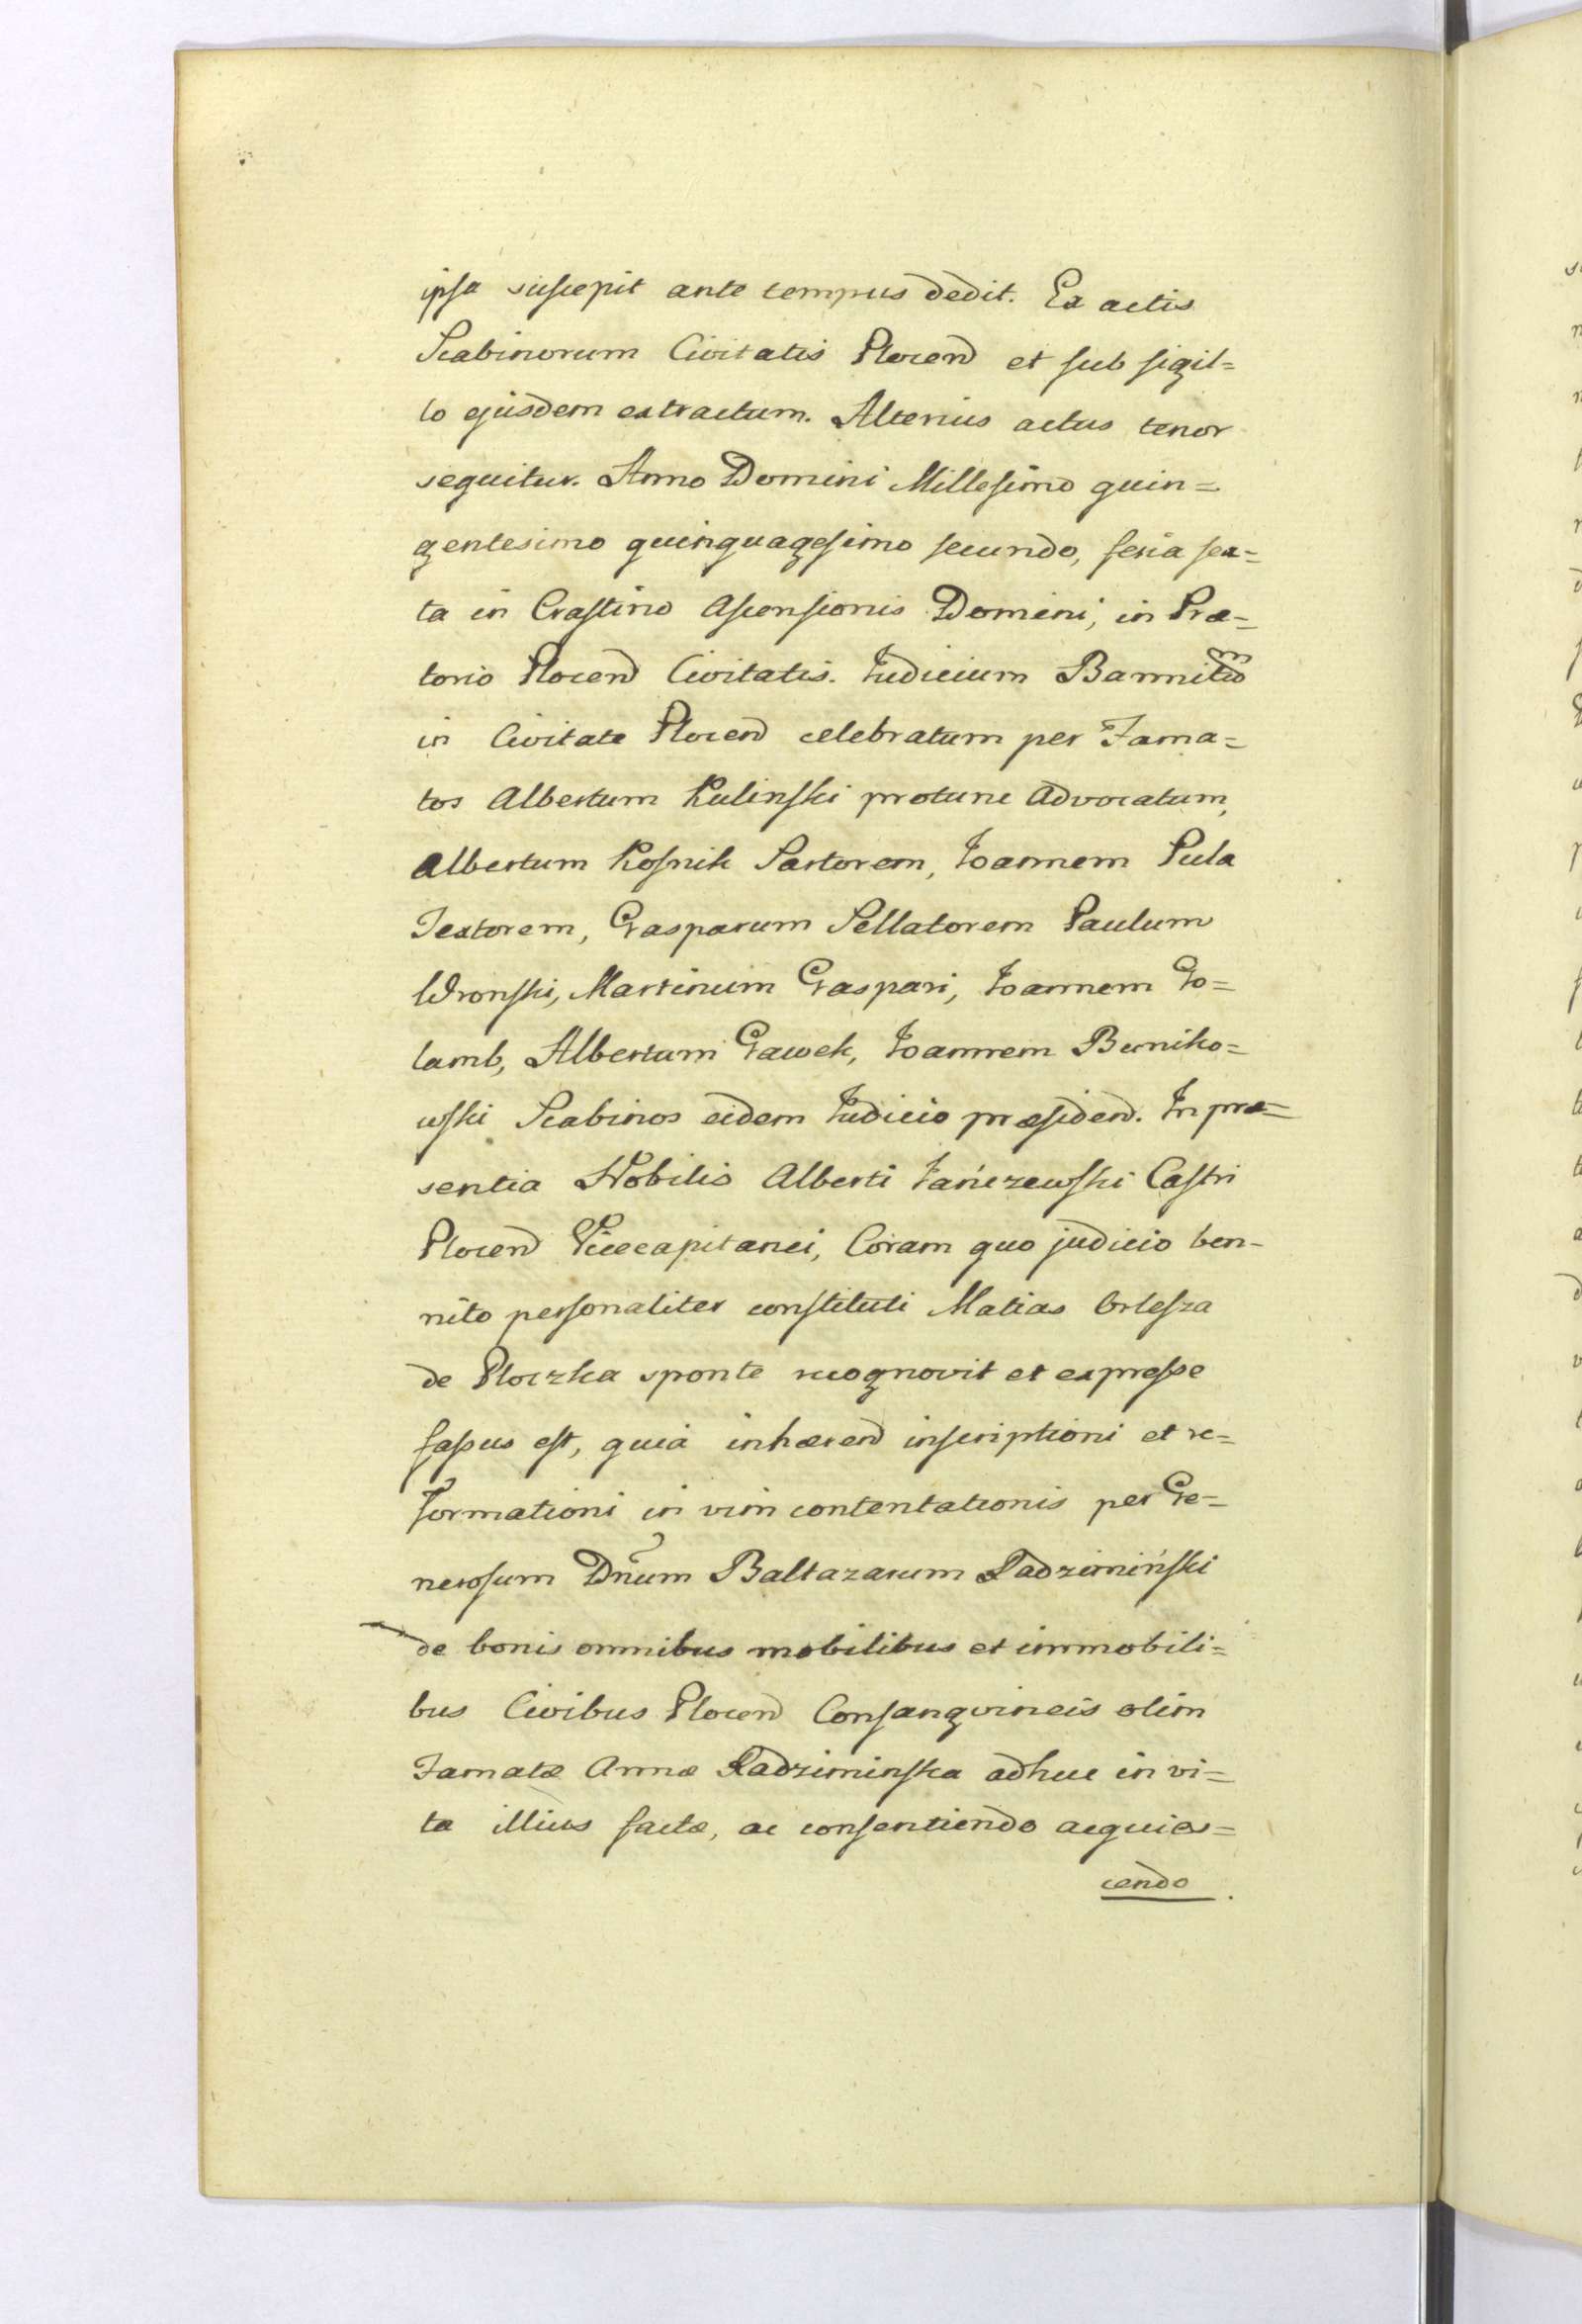 ipsa suscepit ante tempus dedit. Ex actis
Scabinorum Civitatis Plocen et sub sigil=
lo ejusdem extractum. Alterius actus tenor
sequitur. Anno Domini Millesimo quin=
gentesimo quinquagesimo secundo, feria sex=
ta in Crastino Ascensionis Domini, in Præ=
torio Plocen Civitatis. Judicium Bannitum
in Civitate Plocen celebratum per Fama=
tos Albertum Kulinski protunc Advocatum,
Albertum Kosnik Sartorem, Joannem Pula
Textorem, Gasparum Sellatorem Paulum
Wronski, Martinum Gaspari, Joannem Go=
lamb, Albertum Gawek, Joannem Buniko=
wski Scabinos eidem Judicio præsiden. In præ=
sentia Nobilis Alberti Jańczewski Castri
Plocen Vicecapitanei, Coram quo judicio ben-
nito personaliter constituti Matias Orlesza
de Ploczka sponte recognovit et expresse
fassus est, quia inhæren inscriptioni et re=
formationi in vim contentationis per Ge=
nerosum Dnum Baltazarum Radzimiński
de bonis omnibus mobilibus et immobili=
bus Civibus Plocen Consangvineis olim
Famatæ Annæ Radziminska adhuc in vi=
ta illius factæ, ac consentiendo acquies=
cendo